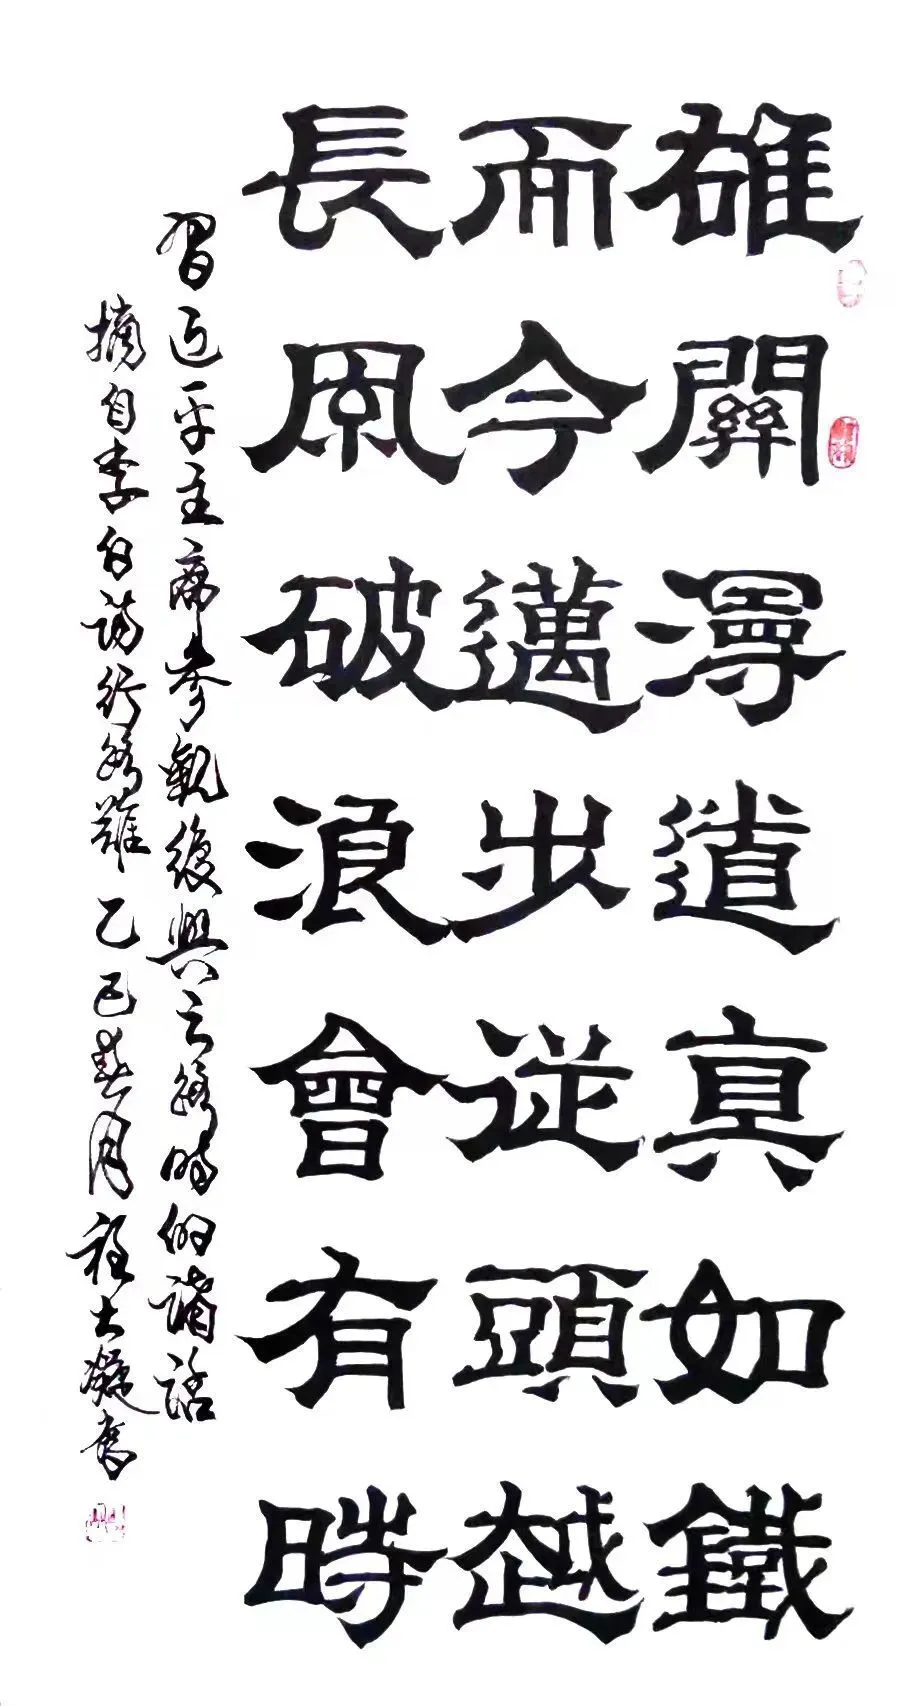 雄關漫道真如鐵
而今邁步從頭越
長風破浪會有時
習近平主席參觀復興之路時的講話
摘自李白詩行路難乙巳春月程大凝書